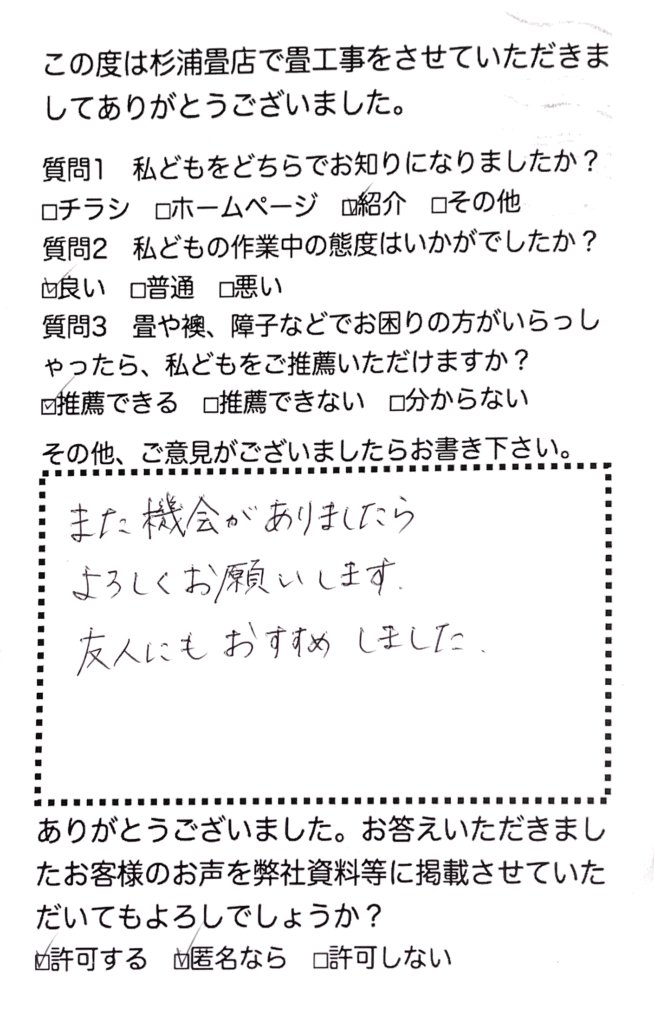 この度は杉浦畳店で畳工事をさせていただきま
してありがとうございました。
質問1　私どもをどちらでお知りになりましたか？
□チラシ　□ホームページ　☑紹介　□その他
質問2　私どもの作業中の態度はいかがでしたか？
☑良い　□普通　□悪い
質問3　畳や襖、障子などでお困りの方がいらっし
ゃったら、私どもをご推薦いただけますか？
☑推薦できる　□推薦できない　□分からない
その他、ご意見がございましたらお書き下さい。
また機会がありましたら
よろしくお願いします.
友人にもおすすめしました.
ありがとうございました。お答えいただきまし
たお客様のお声を弊社資料等に掲載させていた
だいてもよろしでしょうか？
☑許可する　☑匿名なら　□許可しない